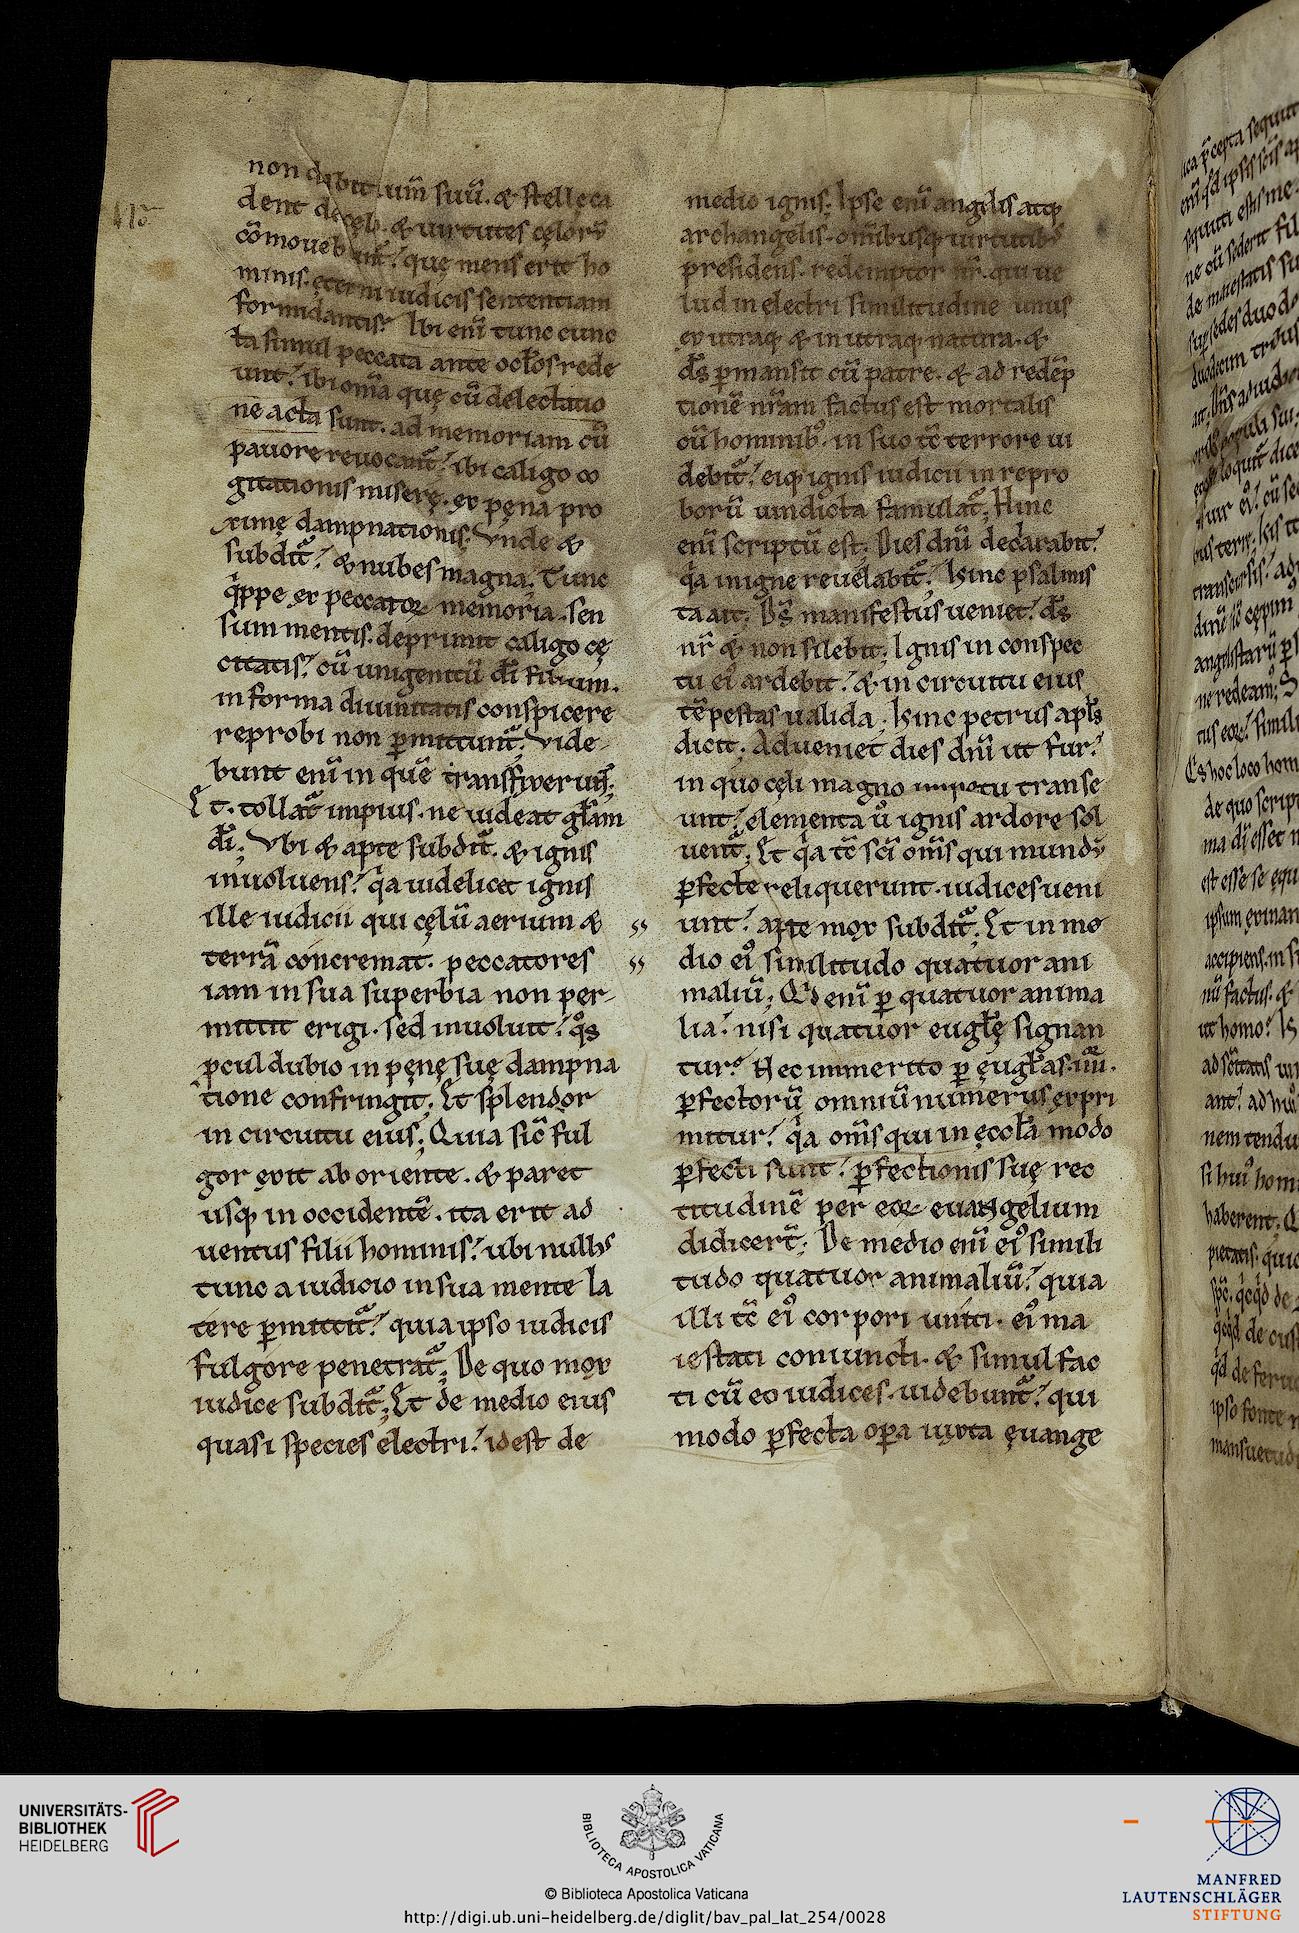 non dabit lum̄ suū. & stellę ca
dent de cęlo. & uirtutes cęlorꝝ
cōmouebunt᷑. quę mens erit ho
minis. ęterni iudicis sententiam
formidantis? Ibi enī tunc cunc
ta simul peccata ante ocl̄os rede
unt. ibi om̄a quę cū delectatio
ne acta sunt. ad memoriam cū
pauore reuocant᷑. ibi caligo co
gitationis miserę. ex pęna pro
ximę dampnationis. Vnde &
subdit᷑. & nubes magna; Tunc
qͥppe ex peccatoꝝ memoria. sen
sum mentis. deprimit caligo cę
citatis. cū unigenitū dī filium.
in forma diuinitatis conspicere
reprobi non ꝑmittunt᷑. Vide
bunt enī in quē transfixerunt;
Et. tollat᷑ impius. ne uideat gl̄am
dī; Vbi & apte subdit᷑. & ignis
inuoluens. qͥa uidelicet ignis
ille iudicii qui cęlū aerium &
terrā concremat. peccatores
iam in sua superbia non per-
mittit erigi. sed inuoluit. qͦs
ꝓcul dubio in pęnę suę dampna
tione confringit; Et splendor
in circuitu eius; Quia sic̄ ful
gor exit ab oriente. & paret
usqꝫ in occidentē. ita erit ad
uentus filii hominis. ubi nullꝰ
tunc a iudicio in sua mente la
tere ꝑmittit᷑. quia ipso iudicis
fulgore penetrat᷑; De quo mox
iudice subdit᷑; Et de medio eius
quasi species electri. idest de
medio ignis. Ipse enī angelis atqꝫ
archangelis. omībusqꝫ uirtutibꝰ
presidens. redemptor nr̄. qui ue
lud in electri similitudine unus
ex utraqꝫ & in utraqꝫ natura. &
ds̄ ꝑmansit cū patre. & ad redēp
tionē nr̄am factus est mortalis
cū hominibꝰ. in suo tc̄ terrore ui
debit᷑. eiqꝫ ignis iudicii in repro
borū uindicta famulat᷑. Hinc
enī scriptū est; Dies dnī declarabit.
qͥa in igne reuelabit᷑. Hinc psalmis
ta ait; Ds̄ manifestus ueniet. ds̄
nr̄ & non silebit; Ignis in conspec
tu eiꝰ ardebit. & in circuitu eius
tēpestas ualida. Hinc petrus apl̄s
dicit; Adueniet dies dnī ut fur.
in quo cęli magno impetu transe
unt. elementa uͦ ignis ardore sol
uent᷑; Et qͥa tc̄ scī om̄s qui mundū
ꝑfecte reliquerunt. iudices ueni
unt. apte mox subdit᷑; Et in me
dio eiꝰ similitudo quatuor ani
maliū; Qͥd enī ꝑ quatuor anima
lia. nisi quatuor eugl̄ę signan
tur? Nec immerito ꝑ eugl̄as .iiii.
ꝑfectorū omniū numerus expri
mitur. qͥa om̄s qui in ęccl̄a modo
ꝑfecti sunt. ꝑfectionis suę rec
titudinē per eoꝝ euangelium
didicer̄t; De medio enī eiꝰ simili
tudo quatuor animaliū. quia
illi tc̄ eiꝰ corpori uniti. eiꝰ ma
iestati coniuncti. & simul fac
ti cū eo iudices. uidebunt᷑. qui
modo ꝑfecta oꝑa iuxta ęuange
UNIVERSITÄTS-
BIBLIOTHEK
HEIDELBERG
BIBLIOTECA APOSTOLICA VATICANA
© Biblioteca Apostolica Vaticana
http://digi.ub.uni-heidelberg.de/diglit/bav_pal_lat_254/0028
MANFRED
LAUTENSCHLÄGER
STIFTUNG